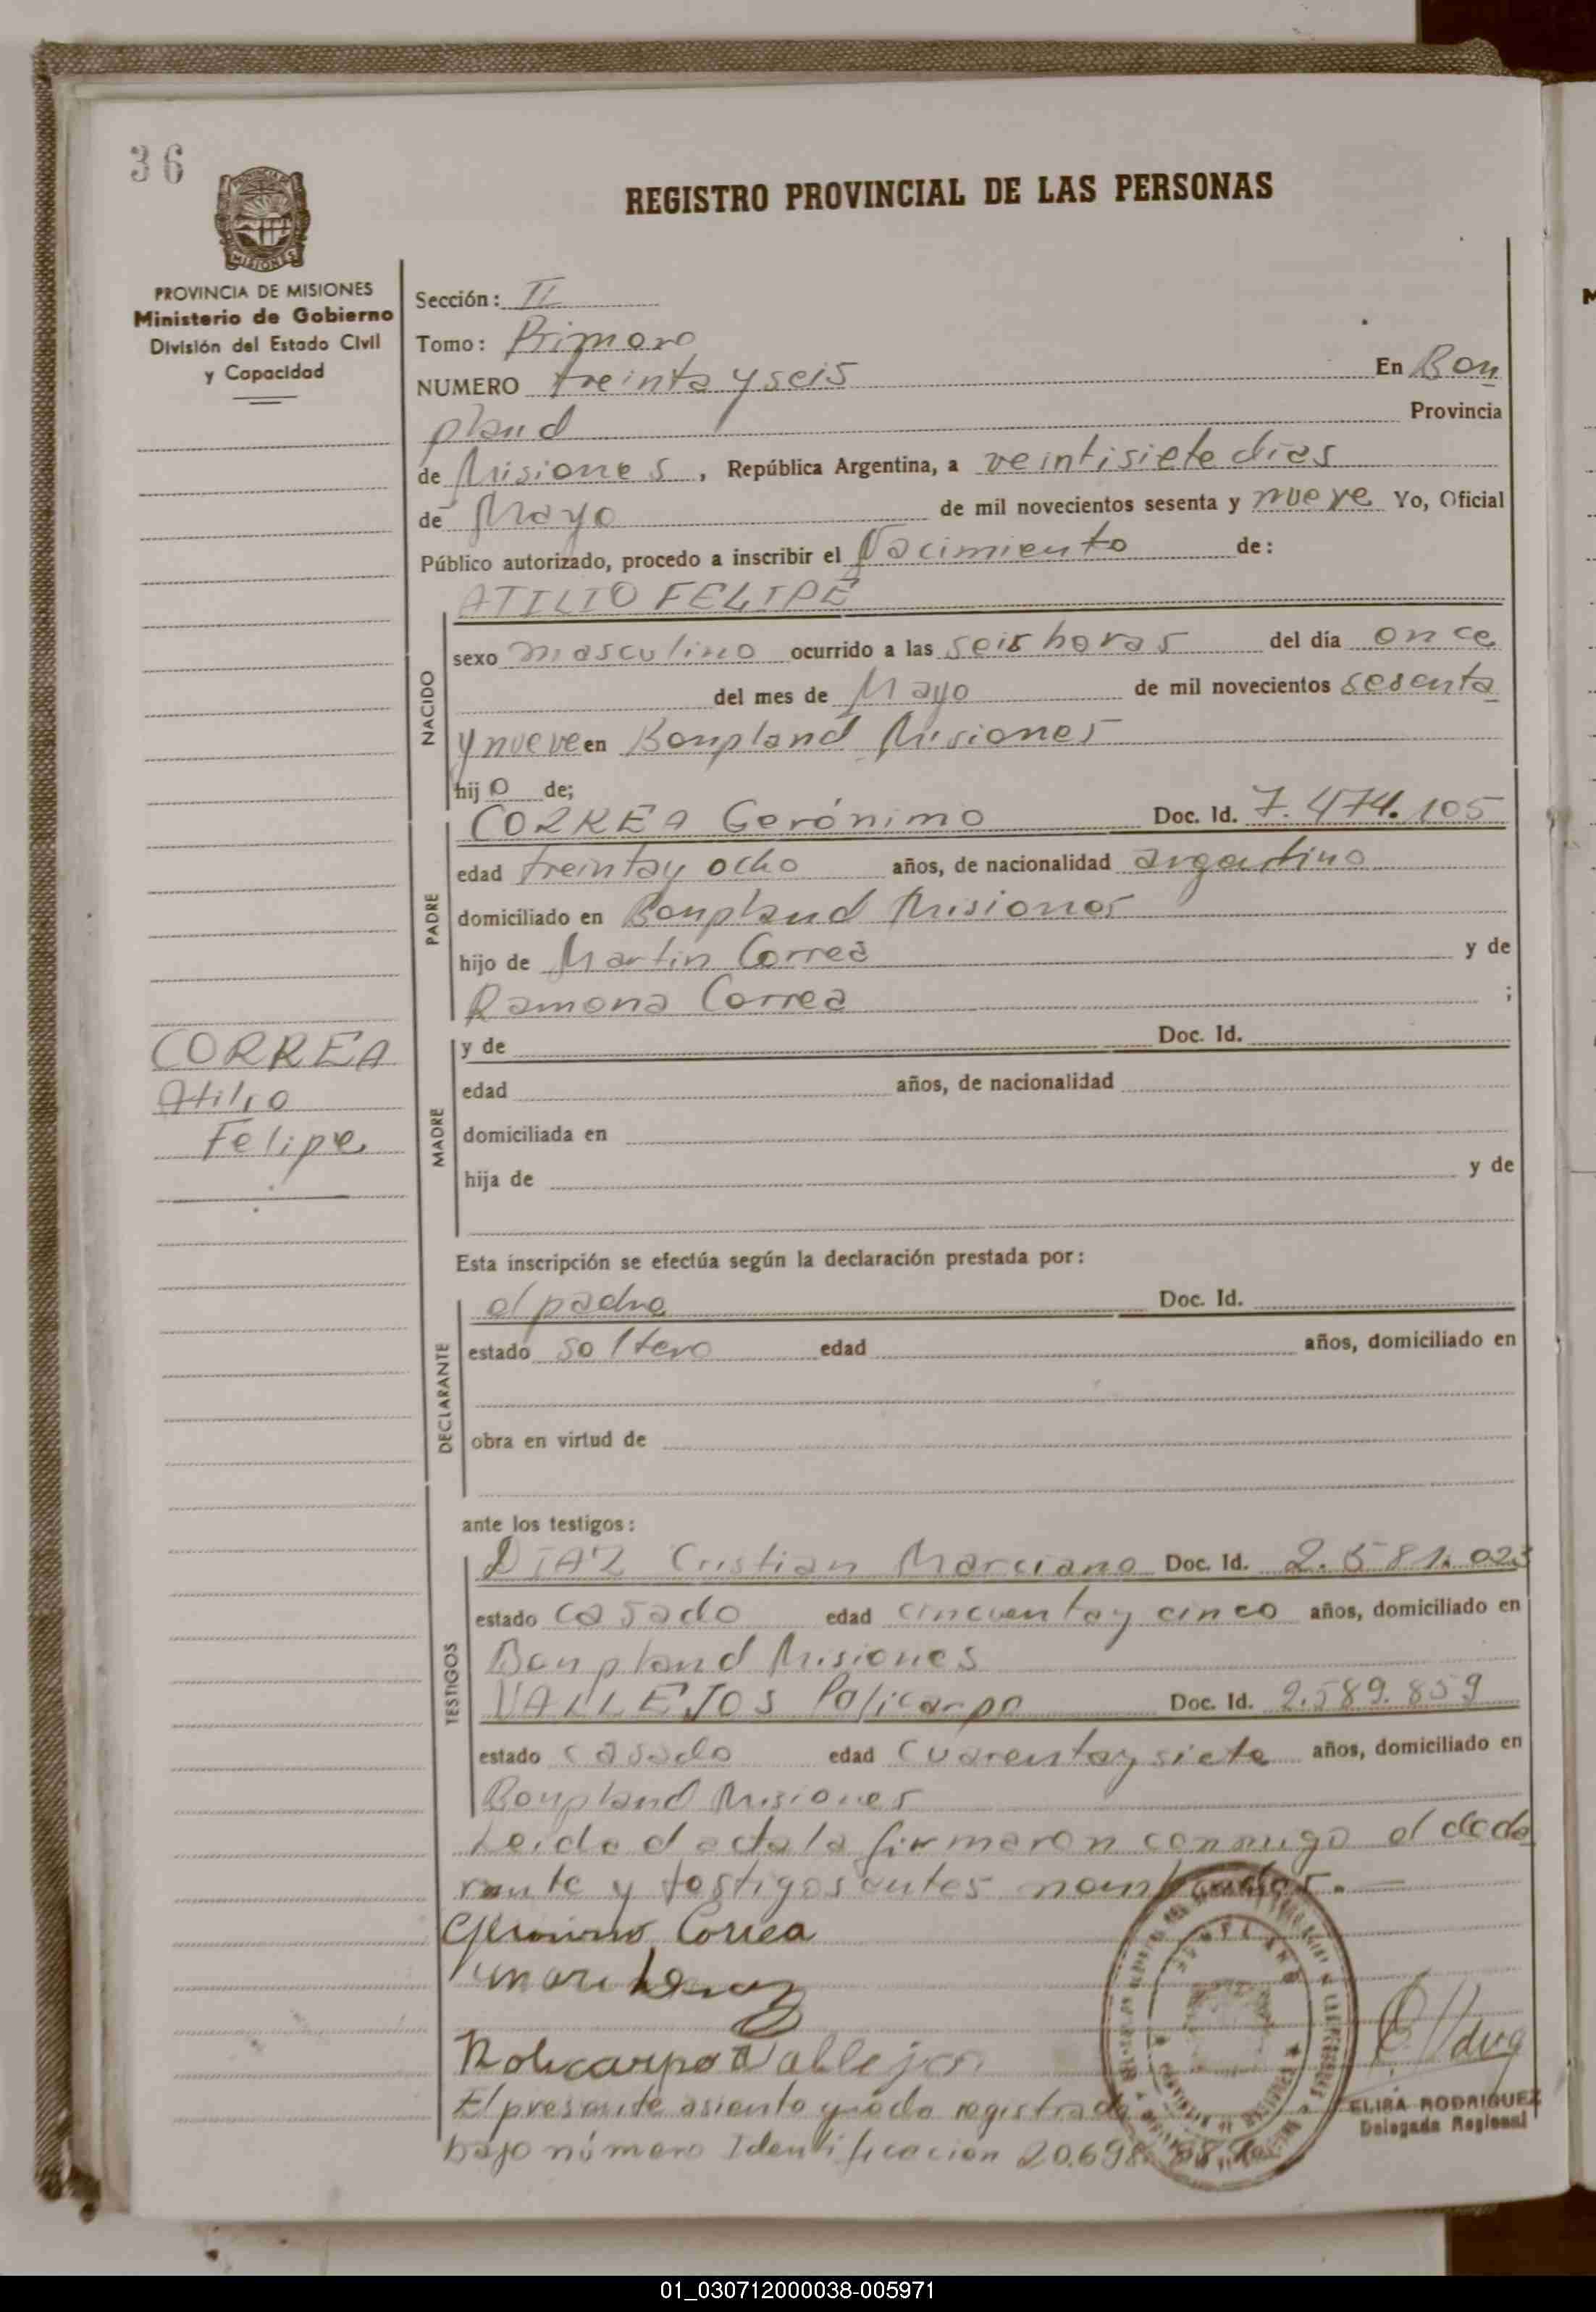 36
REGISTRO PROVINCIAL DE LAS PERSONAS
PROVINCIA DE MISIONES
Ministerio de Gobierno
División del Estado Civil
y Capacidad
Sección: II
Tomo: Primero
NUMERO treinta y seis En Bon
pland Provincia
de Misiones, República Argentina, a veintisiete dias
de Mayo de mil novecientos sesenta y nueve Yo, Oficial
Público autorizado, procedo a inscribir el Nacimiento de:
ATILIO FELIPE
NACIDO
sexo masculino ocurrido a las seis horas del día once
del mes de Mayo de mil novecientos sesenta
y nueve en Bonpland Misiones
hijo de;
PADRE
CORREA Gerónimo Doc. Id. 7.474.105
edad treinta y ocho años, de nacionalidad argentino
domiciliado en Bonpland Misiones
hijo de Martin Correa y de
Ramona Correa ;
CORREA
Atilio
Felipe
MADRE
y de Doc. Id.
edad años, de nacionalidad
domiciliada en
hija de y de
Esta inscripción se efectúa según la declaración prestada por:
DECLARANTE
el padre Doc. Id.
estado soltero edad años, domiciliado en
obra en virtud de
ante los testigos:
TESTIGOS
DIAZ Cristian Marciano Doc. Id. 2.581.023
estado casado edad cincuenta y cinco años, domiciliado en
Bonpland Misiones
VALLEJOS Policarpo Doc. Id. 2.589.859
estado casado edad cuarenta y siete años, domiciliado en
Bonpland Misiones
Leida el acta la firmaron conmigo el decla
rante y testigos antes nombrados.
Geronimo Correa
Policarpo Vallejos
ELISA RODRIGUEZ
Delegada Regional
El presente asiento queda registrado
bajo número Identificacion 20.698.
01_030712000038-005971